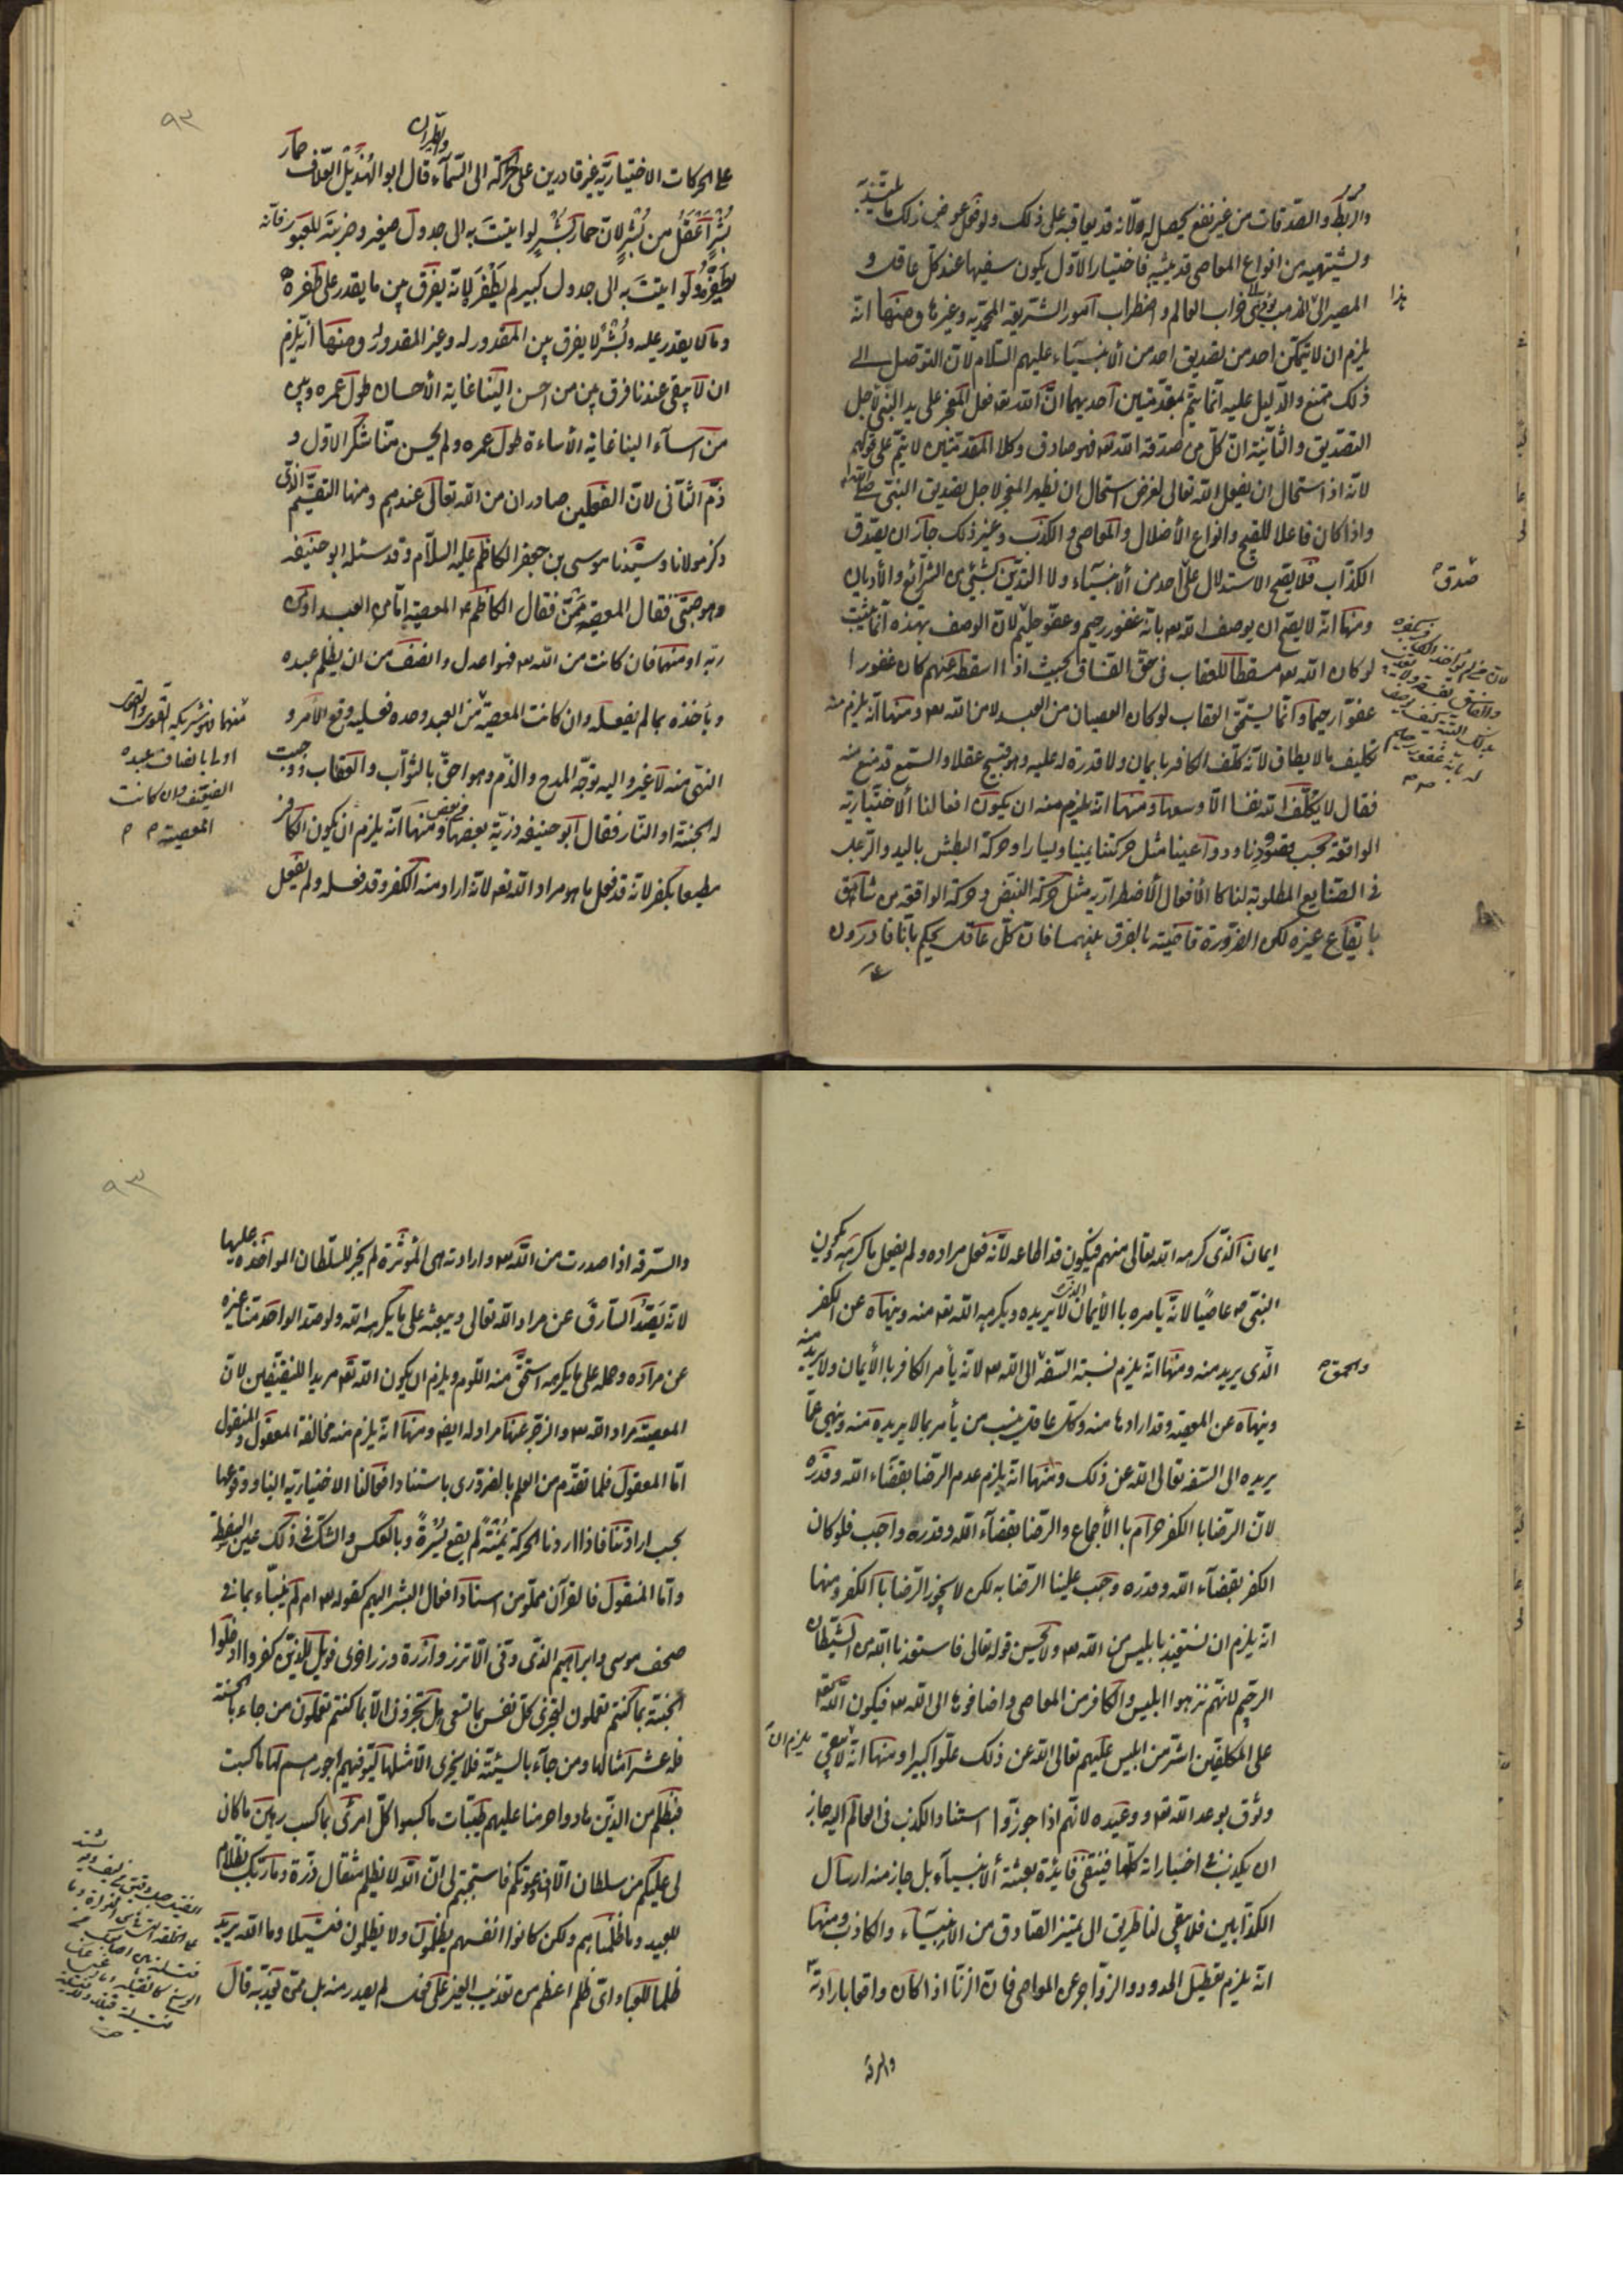 والربط والصدقات من غير نفع يحصل له لانه قد يعاقبه على ذلك ولو فعل عوض ذلك ما يلتذ به
ويشتهيه من انواع المعاصى قد يثيبه فاختيار الاول يكون سفيها عند كل عاقل و
المصير الى المذهب يؤدى الى خراب العالم واضطراب امور الشريعة المحمدية وغيرها ومنها انه
هذا
يلزم ان لا يتمكن احد من تصديق احد من الانبياء عليهم السلام لان التوصل الى
ذلك ممتنع والدليل عليه انما يتم بمقدمتين احديهما ان الله تعه فعل المعجز على يد النبى لاجل
التصديق والثانية ان كل من صدقه الله تعه فهو صادق وكلا المقدمتين لا يتم على قولهم
لانه اذا استحال ان يفعل الله تعالى لغرض استحال ان يظهر المعجز لاجل تصديق النبى
واذا كان فاعلا للقبيح وانواع الاضلال والمعاصى والكذب وغير ذلك جاز ان يصدق
الكذاب فلا يصح الاستدلال على احد من الانبياء ولا التدين بشيئ من الشرائع والاديان
صدق
ومنها انه لا يصح ان يوصف الله تعه بانه غفور رحيم وعفو حليم لان الوصف بهذه انما يثبت
لو كان الله تعه مسقطا للعقاب فى حق الفساق بحيث اذا اسقطه عنهم كان غفورا
عفوا رحيما وانما يستحق العقاب لو كان العصيان من العبد لا من الله تعه ومنها انه يلزم منه
تكليف ما لا يطاق لانه كلف الكافر بايمان ولا قدرة له عليه وهو قبيح عقلا والسمع قد منع منه
فقال لا يكلف الله نفسا الا وسعها ومنها انه يلزم منه ان يكون افعالنا الاختيارية
الواقعة بحسب قصودنا ودواعينا مثل حركتنا يمينا ويسارا وحركة البطش باليد والرجل
فى الصنايع المطلوبة لنا كالافعال الاضطرارية مثل حركة النبض وحركة الواقع من شاهق
بايقاع غيره لكن الضرورة قاضية بالفرق بينهما فان كل عاقل يحكم باننا قادرون
على
٩٢
على الحركات الاختيارية غير قادرين على الحركة الى السماء قال ابو الهذيل العلاف حمار
والطيران
بشر اعقل من بشر لان حمار بشر لو اتيت به الى جدول صغير وضربته للعبور فانه
يطفره ولو اتيت به الى جدول كبير لم يطفر لانه يفرق بين ما يقدر على طفره
وما لا يقدر عليه وبشر لا يفرق بين المقدور له وغير المقدور ومنها انه يلزم
ان لا يبقى عندنا فرق بين من احسن الينا غاية الاحسان طول عمره وبين
من اساء الينا غاية الاساءة طول عمره ولم يحسن منا شكر الاول و
ذم الثانى لان الفعلين صادران من الله تعالى عندهم ومنها التقسيم الذى
ذكر مولانا وسيدنا موسى بن جعفر الكاظم عليه السلام وقد سئله ابو حنيفه
وهو صبى فقال المعصية ممن فقال الكاظم ع المعصية اما من العبد او من
ربه او منهما فان كانت من الله تعه فهو اعدل وانصف من ان يظلم عبده
وياخذه بما لم يفعله وان كانت المعصية من العبد وحده فعليه وقع الامر و
منهما فهو شريكه والقوى
اولى بانصاف عبده
الضعيف وان كانت
المعصية
النهى منه لا غير واليه توجه المدح والذم وهو احق بالثواب والعقاب ووجبت
له الجنة او النار فقال ابو حنيفه ذرية بعضها من بعض ومنها انه يلزم ان يكون الكافر
مطيعا بكفره لانه قد فعل ما هو مراد الله تعه لانه اراد منه الكفر وقد فعله ولم يفعل
ايمان الذى كرهه الله تعالى منهم فيكون قد اطاعه لانه فعل مراده ولم يفعل ما كرهه يكون
النبى ص عاصيا لانه يامره بالايمان الذى لا يريده ويكرهه الله تعه منه وينهاه عن الكفر
الذى يريد منه ومنها انه يلزم نسبة السفه الى الله تعه لانه يأمر الكافر بالايمان ولا يريده منه
والحمق
وينهاه عن المعصية وقد ارادها منه وكل عاقل ينسب من يأمر بما لا يريده منه وينهى عما
يريده الى السفه تعالى الله عن ذلك ومنها انه يلزم عدم الرضا بقضاء الله وقدره
لان الرضا بالكفر حرام بالاجماع والرضا بقضاء الله وقدره واجب فلو كان
الكفر بقضاء الله وقدره وجب علينا الرضا به لكن لا يجوز الرضا بالكفر ومنها
انه يلزم ان نستعيذ بابليس من الله تعه ولا يحسن قوله تعالى فاستعذ بالله من الشيطان
الرجيم لانهم نزهوا ابليس والكافر من المعاصى واضافوها الى الله تعه فيكون الله تعه
على المكلفين اشر من ابليس عليهم تعالى الله عن ذلك علوا كبيرا ومنها انه يلزم ان لا يبقى
وثوق بوعد الله تعه ووعيده لانهم اذا جوزوا استناد الكذب فى العالم اليه جاز
ان يكذب فى اخباراته كلها فينتفى فايدة بعثة الانبياء بل جاز منه ارسال
الكذابين فلا يبقى لنا طريق الى تمييز الصادق من الانبياء والكاذب ومنها
انه يلزم تعطيل الحدود والزواجر عن المعاصى فان الزنا اذا كان واقعا بارادته
والسرقة
٩٣
والسرقة اذا صدرت من الله تعه وارادته هى المؤثرة لم يجز للسلطان المواخذه عليها
لانه يصد السارق عن مراد الله تعالى ويبعثه على ما يكرهه الله ولو صد الواحد منا غيره
عن مراده وحمله على ما يكرهه استحق منه اللوم ويلزم ان يكون الله تعه مريدا للنقيضين لان
المعصية مراد الله تعه والزجر عنها مراد له ايضا ومنها انه يلزم منه مخالفة المعقول والمنقول
اما المعقول فلما تقدم من العلم الضرورى باستناد افعالنا الاختيارية الينا ووقوعها
بحسب ارادتنا فاذا اردنا الحركة يمنة لم يقع يسرة وبالعكس والشك فى ذلك عين السفسطة
واما المنقول فالقرآن مملو من اسناد افعال البشر اليهم كقوله تعه ام لم ينبأ بما فى
صحف موسى وابراهيم الذى وفى الا تزر وازرة وزر اخرى فويل للذين كفروا ادخلوا
الجنة بما كنتم تعملون لتجزى كل نفس بما تسعى هل تجزون الا بما كنتم تعملون من جاء بالحسنة
فله عشر امثالها ومن جاء بالسيئة فلا يجزى الا مثلها ليوفيهم اجورهم لها ما كسبت
فبظلم من الذين هادوا حرمنا عليهم طيبات ما كسبوا كل امرئ بما كسب رهين ما كان
لى عليكم من سلطان الا ان دعوتكم فاستجبتم لى ان الله لا يظلم مثقال ذرة وما ربك بظلام
للعبيد وما ظلمناهم ولكن كانوا انفسهم يظلمون ولا يظلمون فتيلا وما الله يريد
ظلما للعباد اى ظلم اعظم من تعذيب الغير على فعل لم يصدر منه بل ممن يعذبه قال